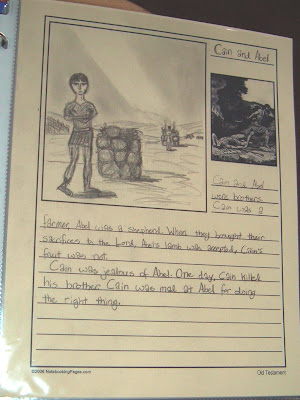 Cain and Abel
Cain and Abel
were brothers.
Cain was a
farmer, Abel was a shepherd. When they brought their
sacrifices to the Lord, Abel's lamb was accepted, Cain's
fruit was not.
Cain was jealous of Abel. One day, Cain killed
his brother. Cain was mad at Abel for doing
the right thing.
©2006 NotebookingPages.com
Old Testament